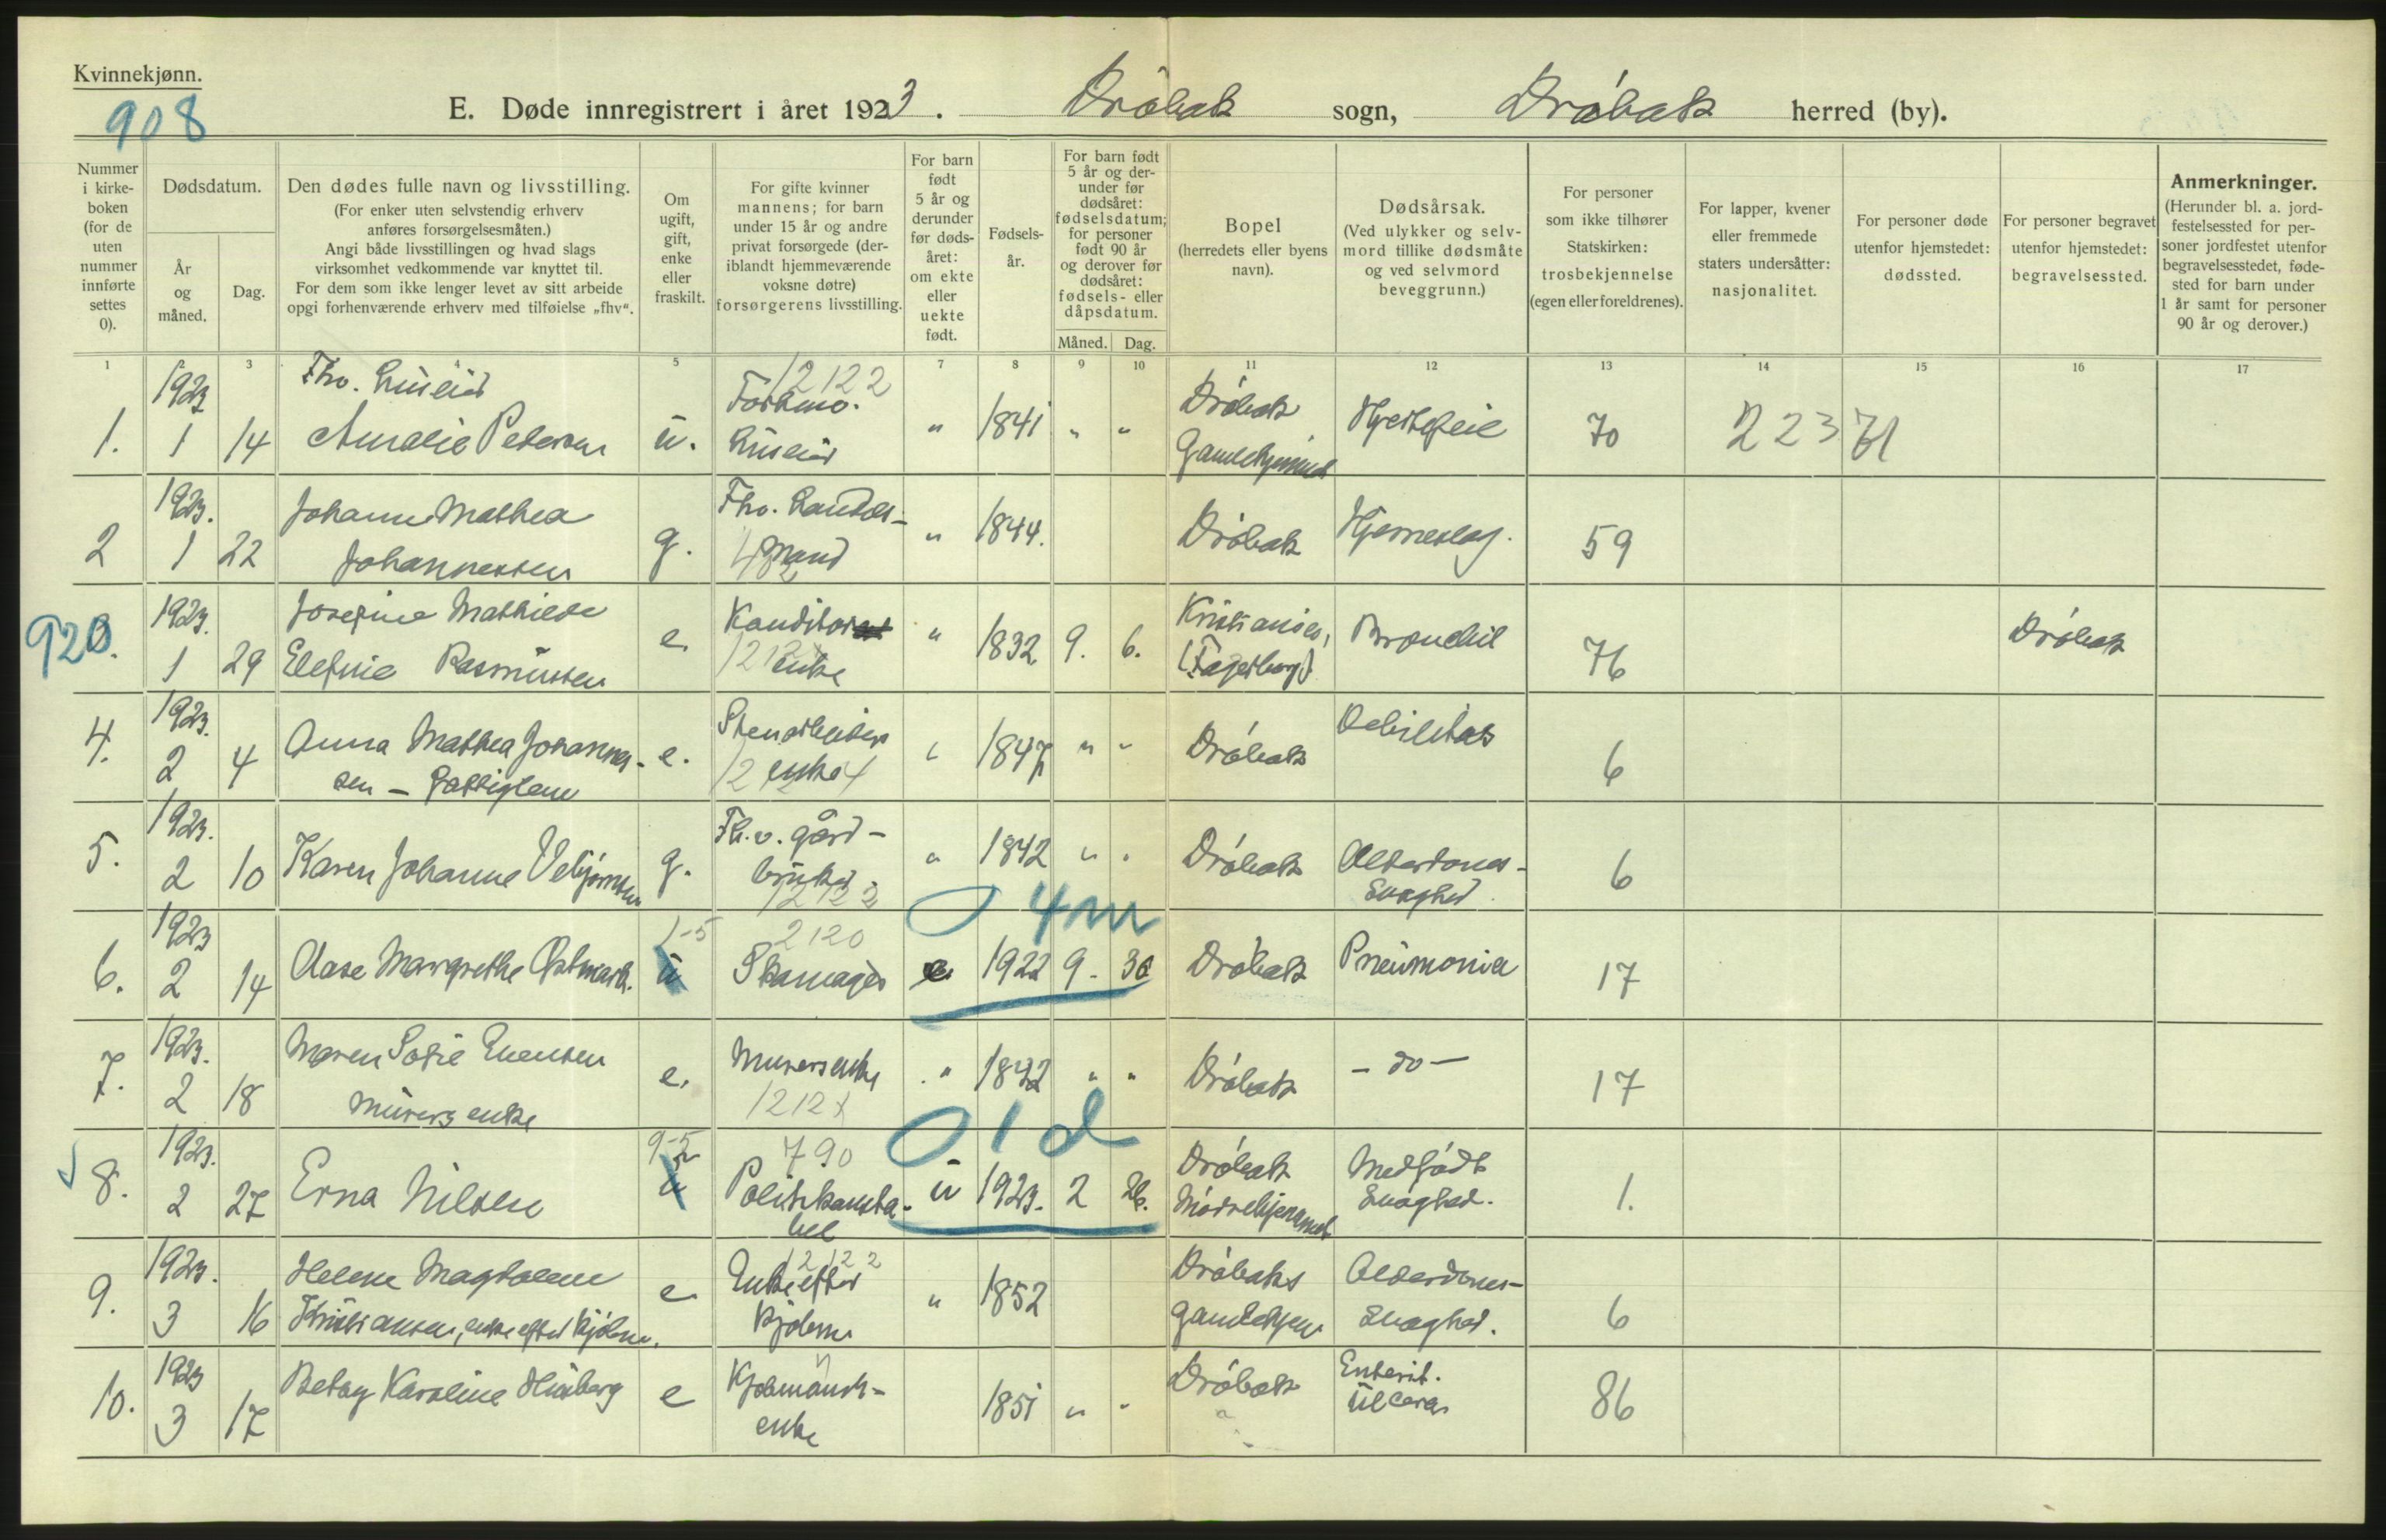 Kvinnekjønn.
908
E. Døde innregistrert i året 1923. Drøbak sogn, Drøbak herred (by).
Nummer i kirkeboken (for de uten nummer innførte settes 0).
Dødsdatum.
År og måned.
Dag.
Den dødes fulle navn og livsstilling.
(For enker uten selvstendig erhverv anføres forsørgelsesmåten.)
Angi både livsstillingen og hvad slags virksomhet vedkommende var knyttet til.
For dem som ikke lenger levet av sitt arbeide opgi forhenværende erhverv med tilføielse „fhv“.
Om ugift, gift, enke eller fraskilt.
For gifte kvinner mannens; for barn under 15 år og andre privat forsørgede (deriblandt hjemmeværende voksne døtre) forsørgerens livsstilling.
For barn født 5 år og derunder før dødsåret: om ekte eller uekte født.
Fødselsår.
For barn født 5 år og derunder før dødsåret: fødselsdatum; for personer født 90 år og derover før dødsåret: fødsels- eller dåpsdatum.
Måned. Dag.
Bopel
(herredets eller byens navn).
Dødsårsak.
(Ved ulykker og selvmord tillike dødsmåte og ved selvmord beveggrunn.)
For personer som ikke tilhører Statskirken: trosbekjennelse (egen eller foreldrenes).
For lapper, kvener eller fremmede staters undersåtter: nasjonalitet.
For personer døde utenfor hjemstedet: dødssted.
For personer begravet utenfor hjemstedet: begravelsessted.
Anmerkninger.
(Herunder bl. a. jordfestelsessted for personer jordfestet utenfor begravelsesstedet, fødested for barn under 1 år samt for personer 90 år og derover.)
1 3 4 5 7 8 9 10 11 12 13 14 15 16 17
1. 1923 1 14 Fhv. Amalie Petersen u. 12122 " 1841 " " Drøbak Gamlehjemmet Hjertefeil 70 22371
2 1923. 1 22 Johanne Mathea Johannessen g. Fhv. Landhandlmand " 1844. Drøbak Hjerneslag. 59
920. 1923. 1 29 Josefine Mathilde Elefine Rasmussen e. Konditor enke " 1832 9. 6. Kristiania, (Fagerborg) Bronchit 76 Drøbak
4. 1923. 2 4 Anna Mathea Johannessen - Fattiglem e. Stenarbeiders enke " 1847 " " Drøbak Debilitas 6
5. 1923. 2 10 Karen Johanne Vebjørnsen g. Fh.v. gårdbruker 12122 " 1842 " " Drøbak Alderdomssvaghed 6
0 4m
6. 1923 2 14 Aase Margrethe Østmark. 1-5 u 2120 Skomager e. 1922 9. 30 Drøbak Pneumonia 17
7. 1923. 2 18 Maren Sofie Evensen murers enke e. Murersenke " 1842 " " Drøbak - do - 17
0 1 d
8. 1923. 2 27 Erna Nilsen 9-5 u 790 Politikonstabel u 1923. 2 26. Drøbak Mødrehjemmet Medfødt Svaghed. 1.
9. 1923. 3 16 Helene Magdalene Kristiansen, enke efter kjølem. e 12122 Enke efter kjølem " 1852 Drøbaks gamlehjem Alderdomssvaghed. 6
10. 1923 3 17 Betsy Karoline e Kjøbmandsenke 1851 " " Drøbak Enterit. Ulceras 86